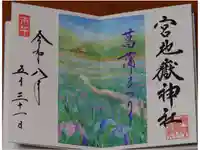 宮地嶽神社
菖蒲まつり
令和八年
五月三十一日